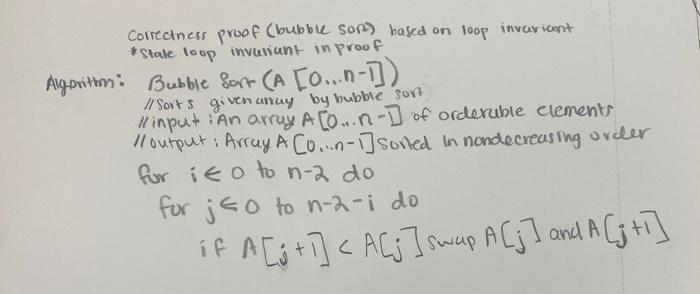 Correctness proof (bubble sort) based on loop invariant
*State loop invariant in proof
Algorithm: Bubble Sort (A [0...n-1])
//Sorts given array by bubble sort
//input: An array A[0...n-1] of orderable elements
//output: Array A[0...n-1] sorted in nondecreasing order
for i ← 0 to n-2 do
for j ← 0 to n-2-i do
if A[j+1] < A[j] swap A[j] and A[j+1]